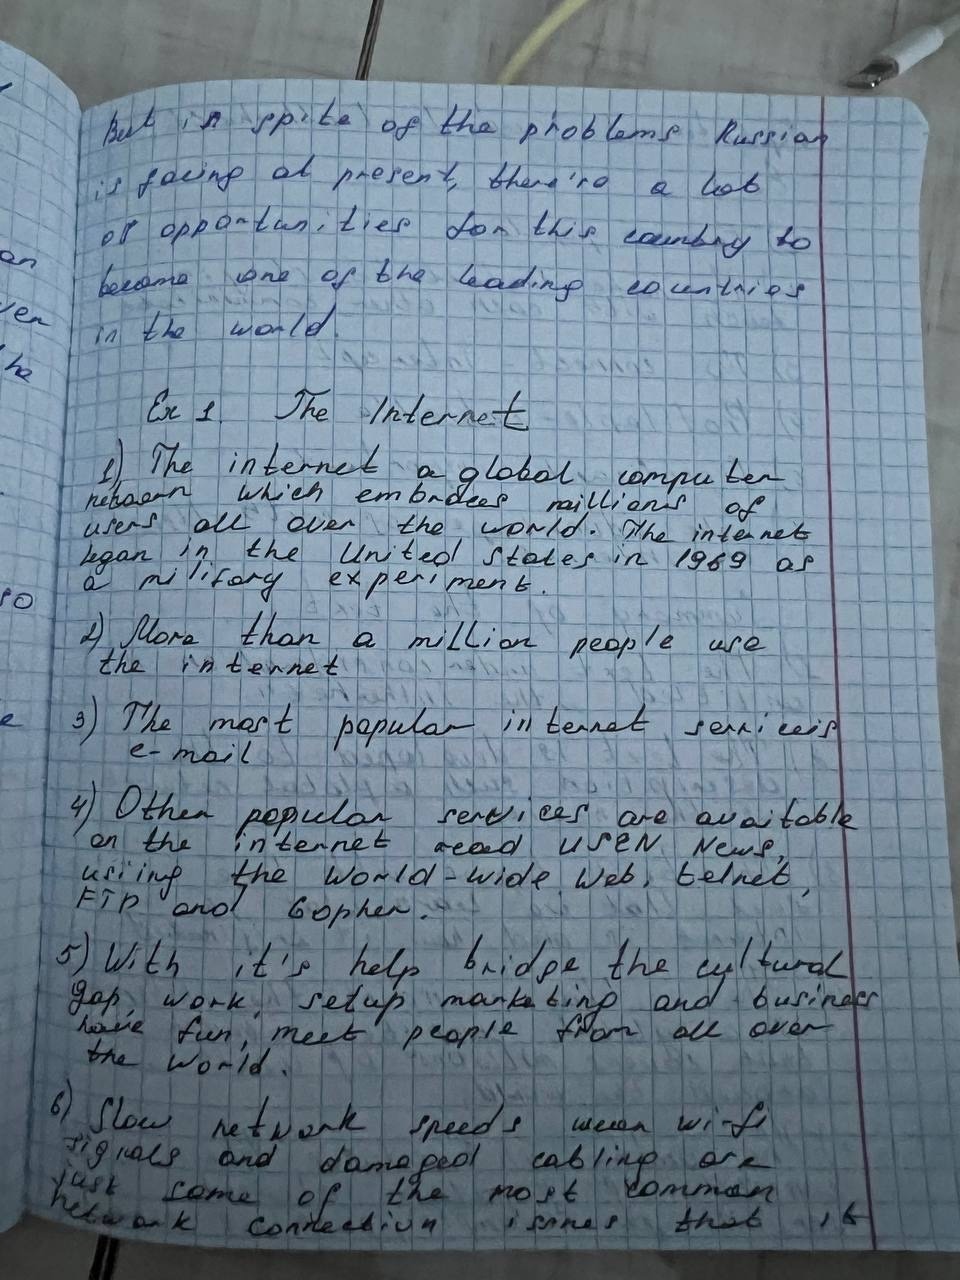 an
ver
he
so
e
But in spite of the problems Russian
is facing at present, there're a lot
of opportunities for this country to
become one of the leading countries
in the world.
Ex 1. The Internet
1) The internet a global computer
which embraces millions of
users all over the world. The internet
began in the United States in 1969 as
a military experiment.
2) More than a million people use
the internet
3) The most popular internet serviceis
e-mail
4) Other popular services are avaitable
on the internet read USEN News,
using the World-wide Web, telnet,
FTP and Gopher.
5) With it's help bridge the cultural
gap, work, setup marketing and business
have fun, meet people from all over
the World.
6) Slow network speeds wean wi-fi
signals and damaged cabling are
just some of the most common
network connection issnes that it